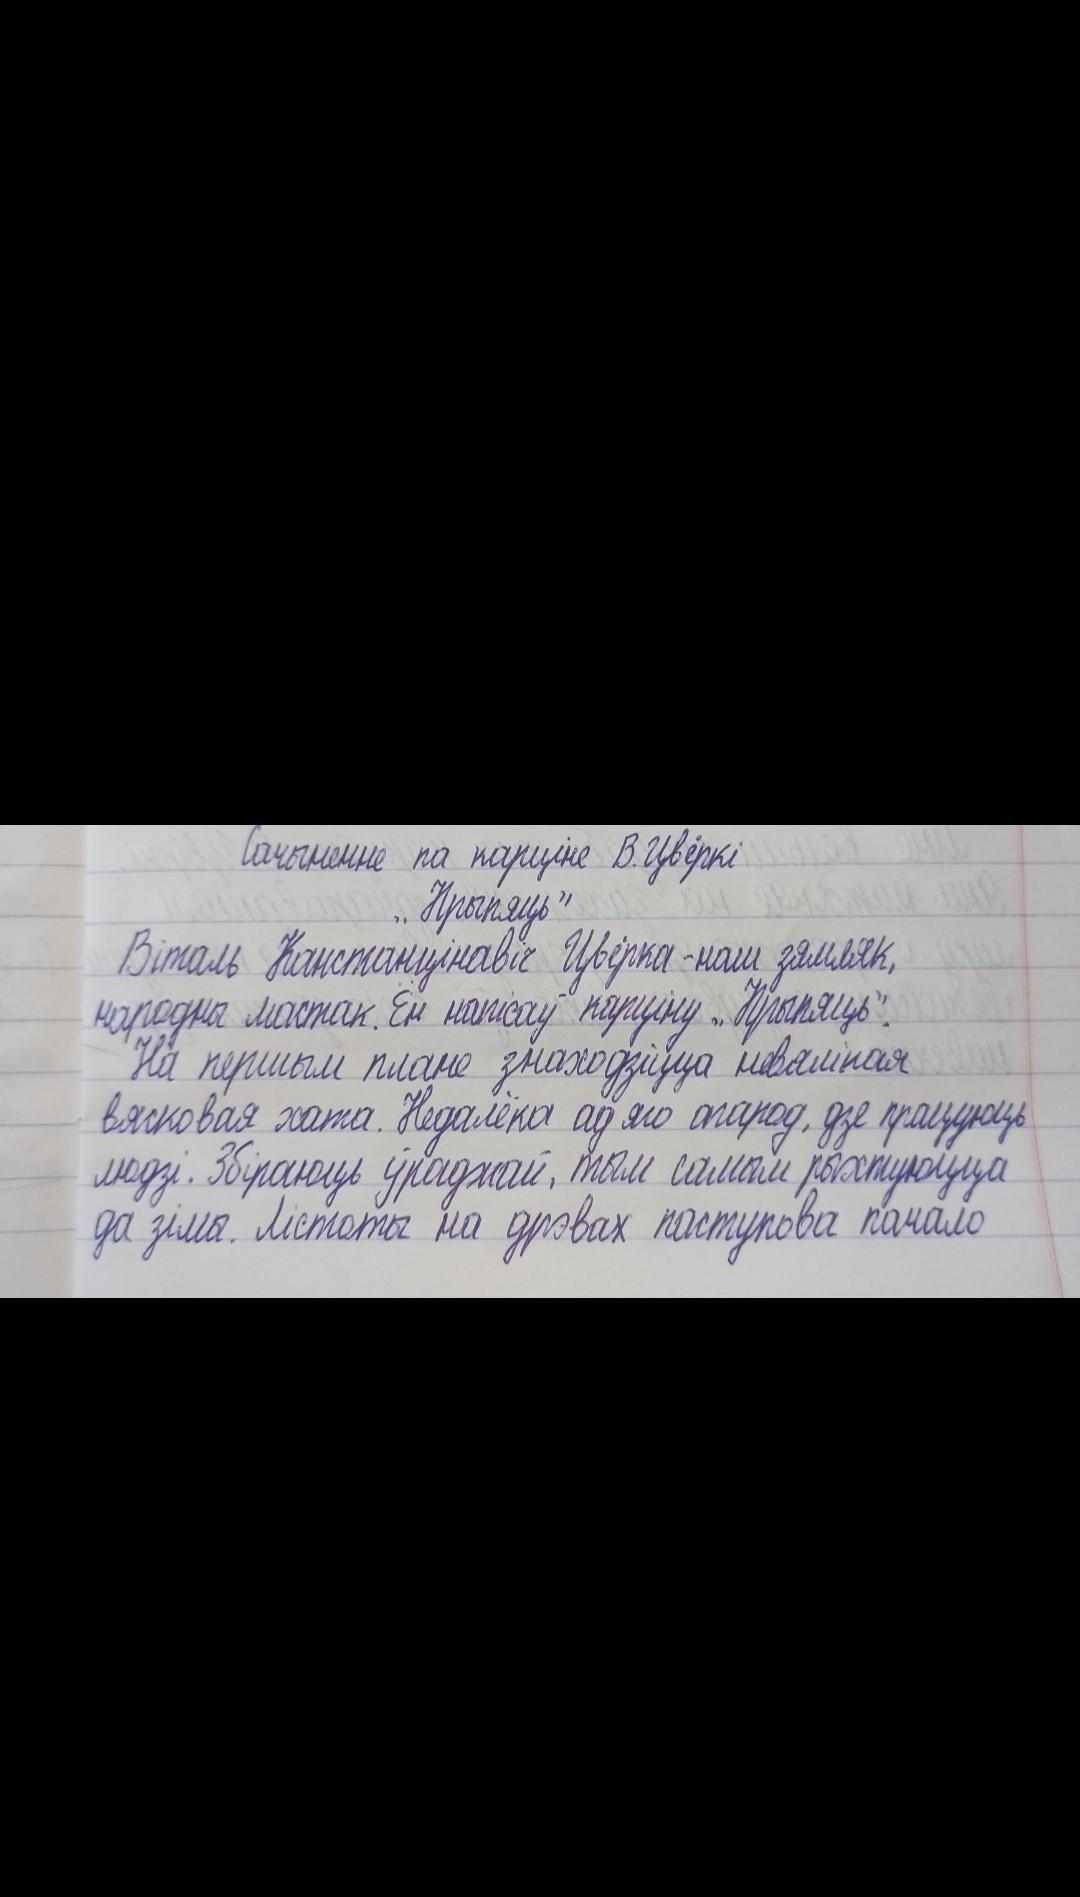 Сачыненне па карціне В. Цвёркі
„Прыпяць"
Віталь Канстанцінавіч Цвёрка - наш зямляк,
народны мастак. Ён напісаў карціну „Прыпяць".
На першым плане знаходзіцца невялікая
вясковая хата. Недалёка ад яго агарод, дзе працуюць
людзі. Збіраюць ўраджай, тым самым рыхтуюцца
да зімы. Лістоты на дрэвах паступова пачало